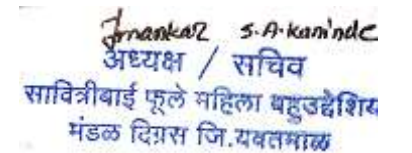 S.A.Kaninde
अध्यक्ष / सचिव
सावित्रीबाई फूले महिला बहुउद्देशिय
मंडळ दिग्रस जि.यवतमाळ